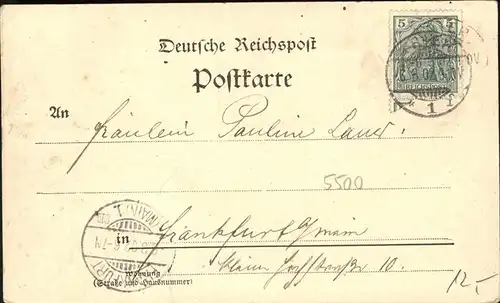 5 5
Deutsche Reichspost
Postkarte
An
Fräulein Pauline Lauer
1 I
5500
in
Frankfurt a/main
Wohnung
(Straße und Hausnummer)
kleine Hochstraße 10.
12.-